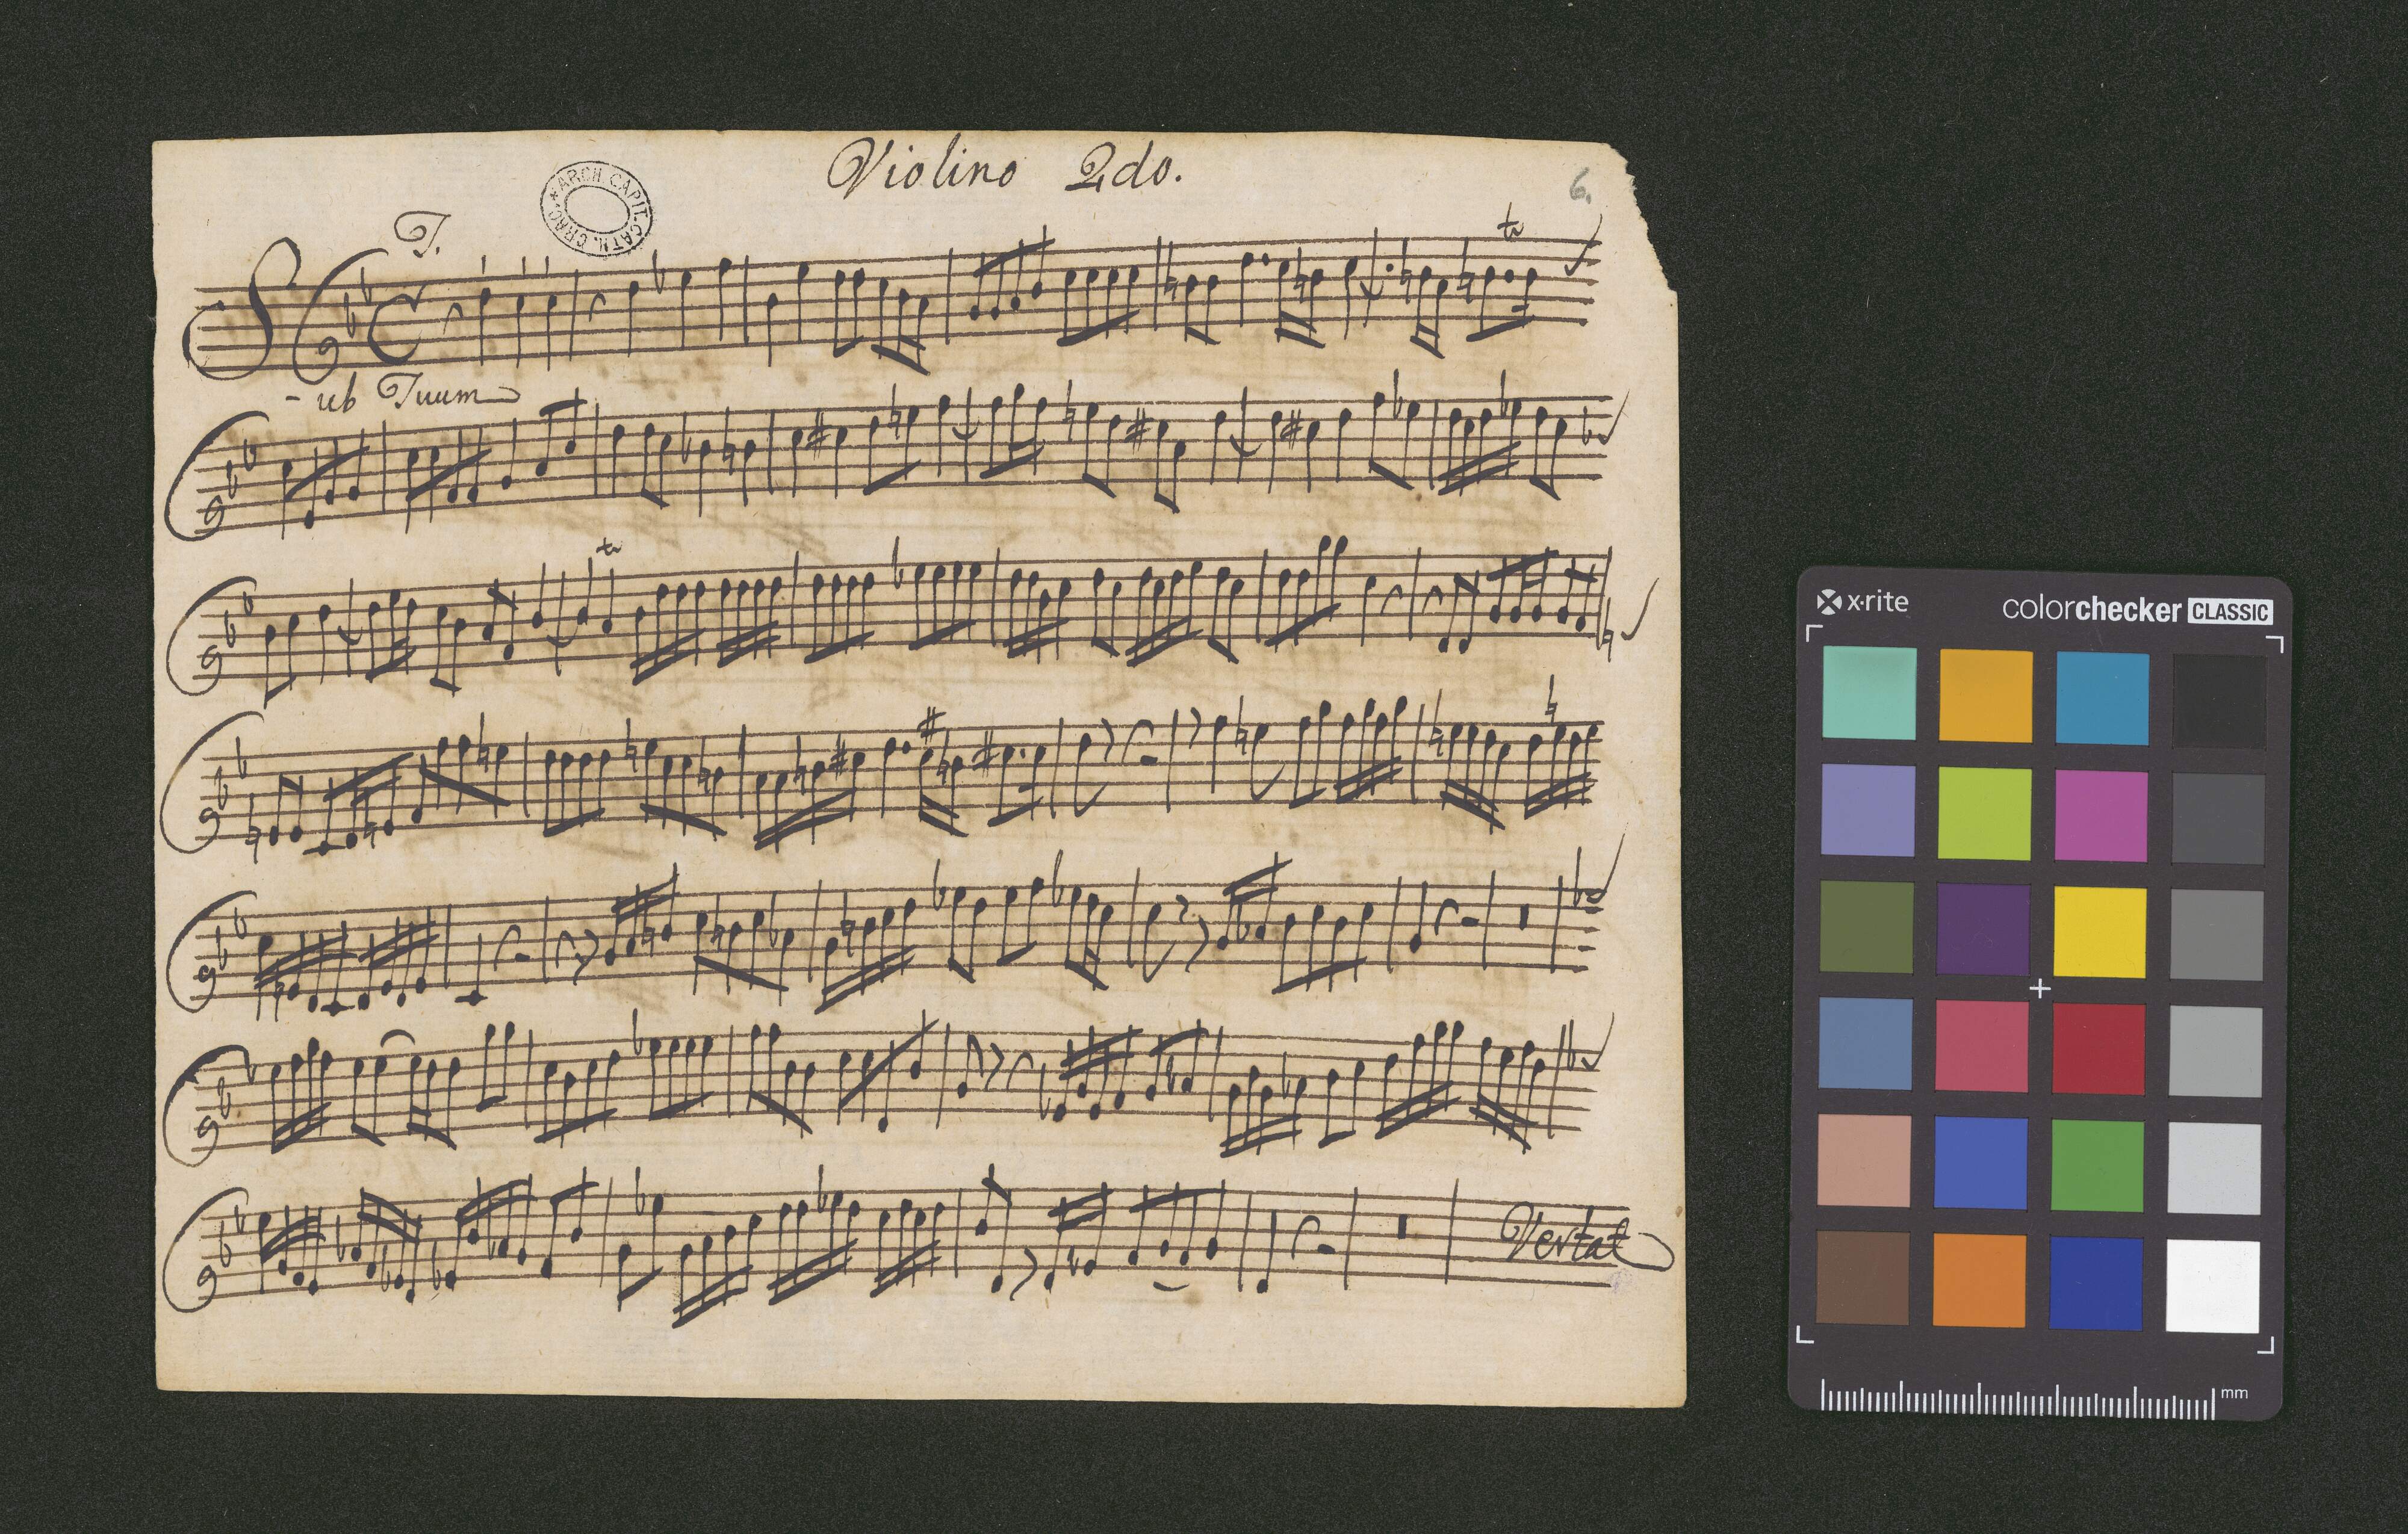 Violino 2do.
ARCH. CAPIT. CATH. CRAC.
6.
T.
tr
S
-ub Tuum
tr
Vertat
x-rite
colorchecker CLASSIC
mm